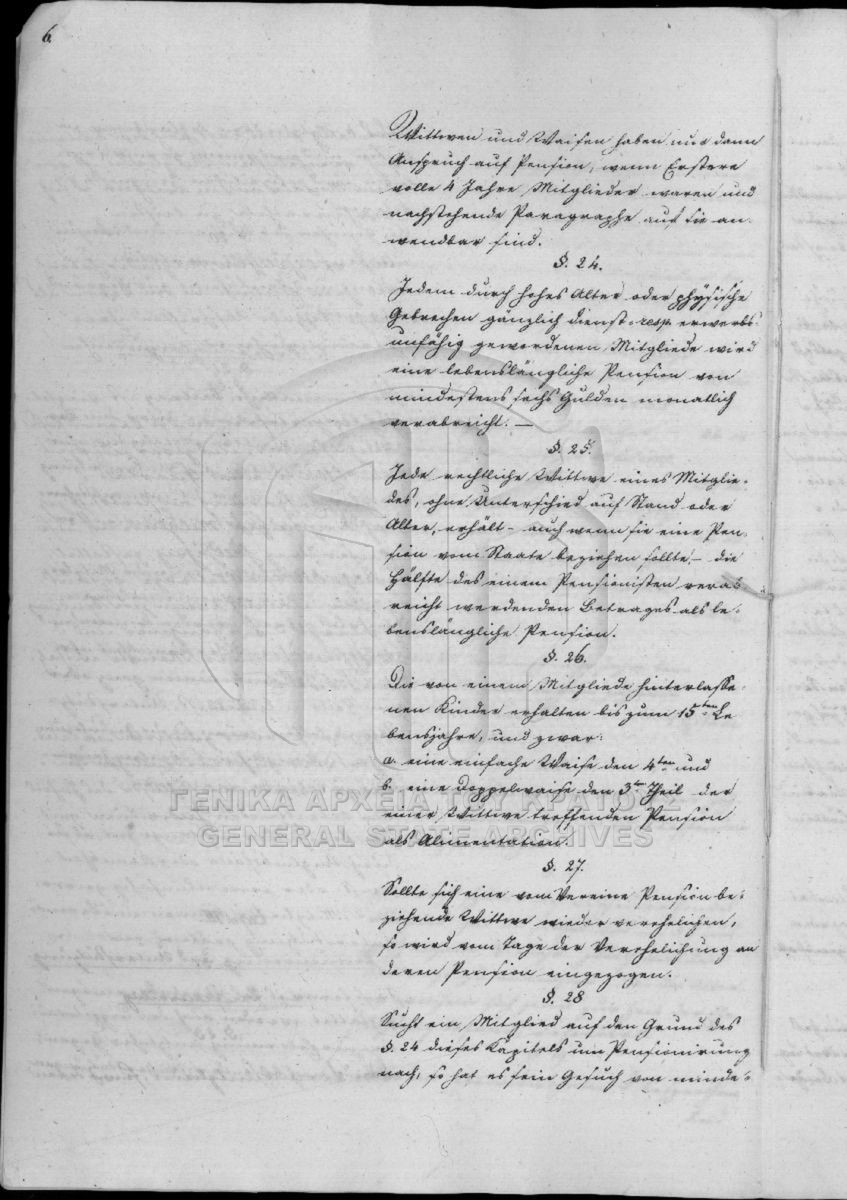 6
Wittwen und Waisen haben nur dann
Anspruch auf Pension, wenn Erstere
volle 4 Jahre Mitglieder waren und
nachstehende Paragraphe auf sie an-
wendbar sind.
§. 24.
Jedem durch hohes Alter oder physische
Gebrechen gänzlich dienst- resp. erwerbs-
unfähig gewordenen Mitgliede wird
eine lebenslängliche Pension von
mindestens sechs Gulden monatlich
verabreicht. —
§. 25.
Jede rechtliche Wittwe eines Mitglie-
des, ohne Unterschied auf Stand oder
Alter, erhält – auch wenn sie eine Pen-
sion vom Staate beziehen sollte, – die
Hälfte des einem Pensionisten verab-
reicht werdenden Betrages als le-
benslängliche Pension.
§. 26.
Die von einem Mitgliede hinterlasse-
nen Kinder erhalten bis zum 15ten Le
bensjahre, und zwar:
a. eine einfache Waise den 4ten und
b. eine Doppelwaise den 3ten Theil der
einer Wittwe treffenden Pension
als Alimentation.
§. 27.
Sollte sich eine vom Vereine Pension be-
ziehende Wittwe wieder verehelichen,
so wird vom Tage der Verehelichung an
deren Pension eingezogen.
§. 28
Sucht ein Mitglied auf den Grund des
§. 24 dieses Kapitels um Pensionirung
nach, so hat es sein Gesuch von minde-
ΓΕΝΙΚΑ ΑΡΧΕΙΑ ΤΟΥ ΚΡΑΤΟΥΣ
GENERAL STATE ARCHIVES